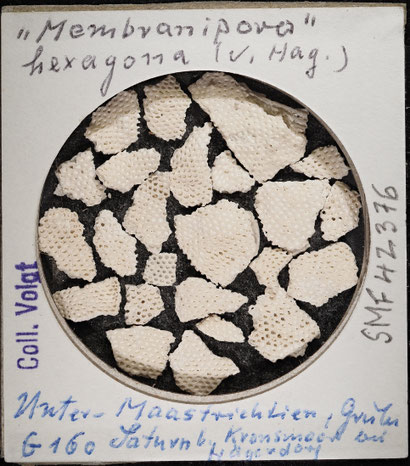 „Membranipora"
hexagona (v. Hag.)
Coll. Voigt
SMF 42376
Unter-Maastrichtien, Grube
G 160 Saturn b. Kronsmoor bei
Lägerdorf